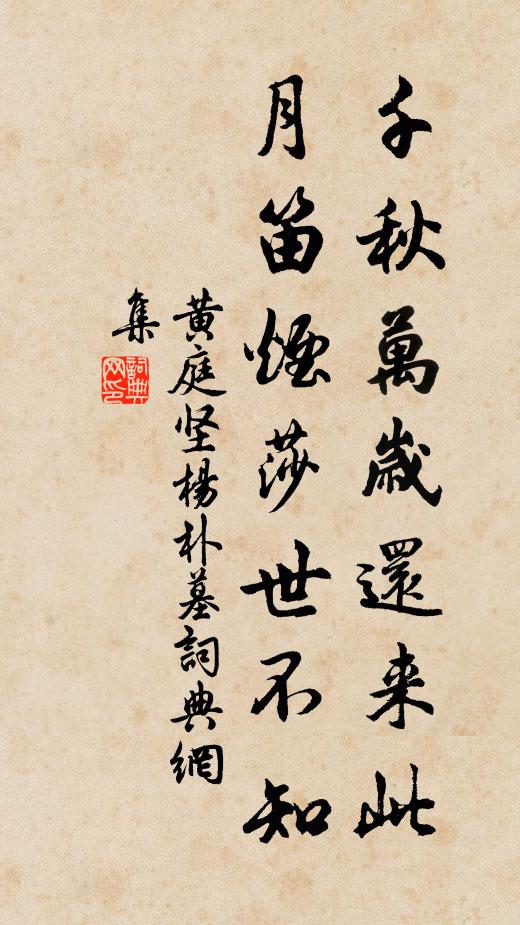 千秋萬歲還来此
月笛煙莎世不知
黄庭坚楊朴墓詞典網
集
詞典网印